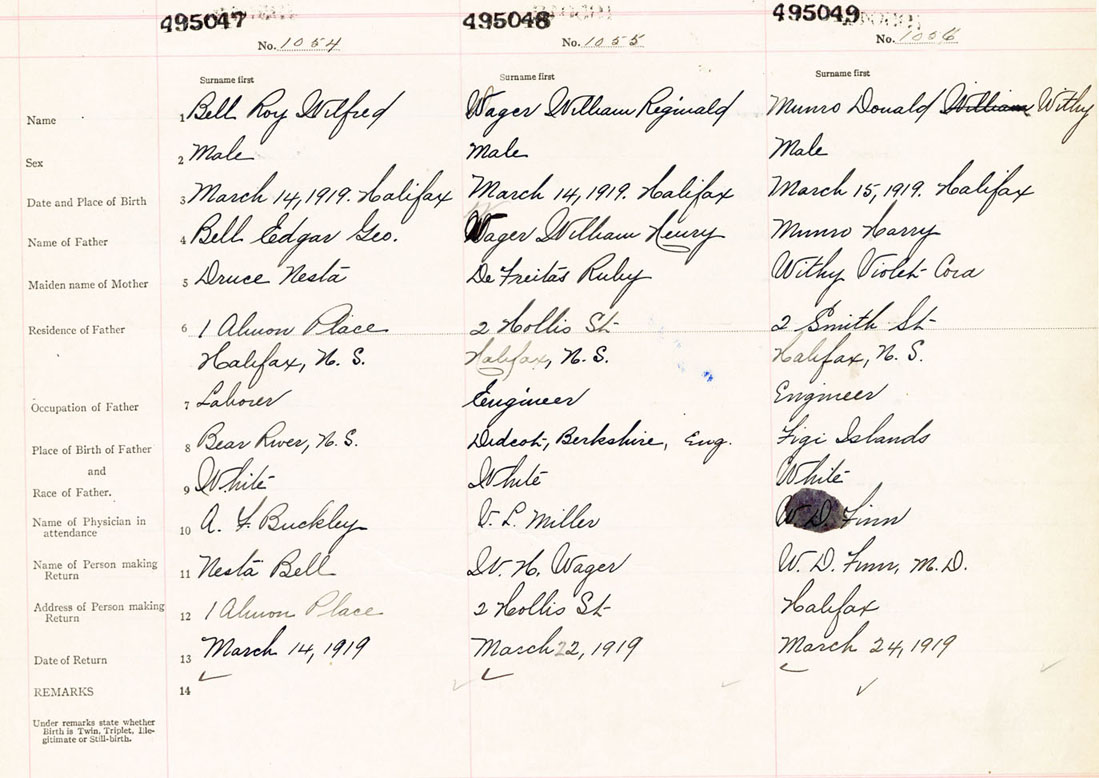 495047 495048 495049
No. 1054 No. 1055 No. 1056
Surname first Surname first Surname first
Name 1 Bell Roy Wilfred Wager William Reginald Munro Donald William Withy
Sex 2 Male Male Male
Date and Place of Birth 3 March 14, 1919. Halifax March 14, 1919. Halifax March 15, 1919. Halifax
Name of Father 4 Bell Edgar Geo. Wager William Henry Munro Harry
Maiden name of Mother 5 Druce Nesta De Freitas Ruby Withy Violet Cora
Residence of Father 6 1 Almon Place 2 Hollis St 2 Smith St
Halifax, N. S. Halifax, N. S. Halifax, N. S.
Occupation of Father 7 Laborer Engineer Engineer
Place of Birth of Father 8 Bear River, N. S. Didcot, Berkshire, Eng. Figi Islands
and
Race of Father. 9 White White White
Name of Physician in
attendance 10 A. F. Buckley V. L. Miller W. D. Finn
Name of Person making
Return 11 Nesta Bell W. H. Wager W. D. Finn, M. D.
Address of Person making
Return 12 1 Almon Place 2 Hollis St Halifax
Date of Return 13 March 14, 1919 March 22, 1919 March 24, 1919
REMARKS 14
Under remarks state whether
Birth is Twin, Triplet, Ille-
gitimate or Still-birth.